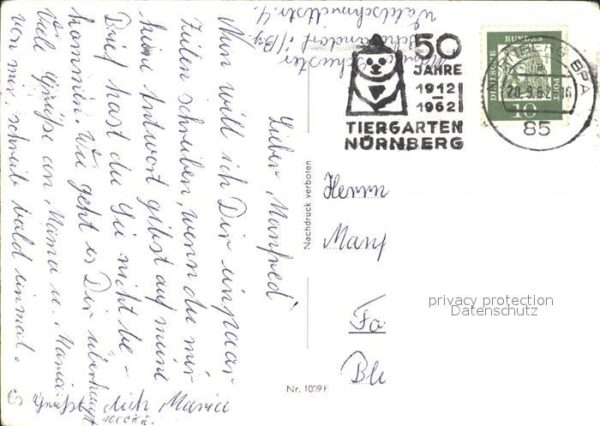 Maria Schuster
Schwandorf i/Bay.
Waldschmidtstr. 4.
Lieber Manfred
Nun will ich Dir ein paar
Zeilen schreiben, wenn du mir
keine Antwort gibst auf meine
Brief hast du Sie nicht be-
kommen. Wie geht es Dir überhaupt
Viele Grüße an Mama u. Maria
von mir, schreib bald einmal.
Es grüßt dich Maria
50
JAHRE
1912-
1962
TIERGARTEN
NÜRNBERG
DEUTSCHE
BUNDES
POST
10
NÜRNBERG BPA
28.9.62-16
85
Herrn
Manf
Fa
Ble
privacy protection
Datenschutz
Nachdruck verboten
Nr. 1009F